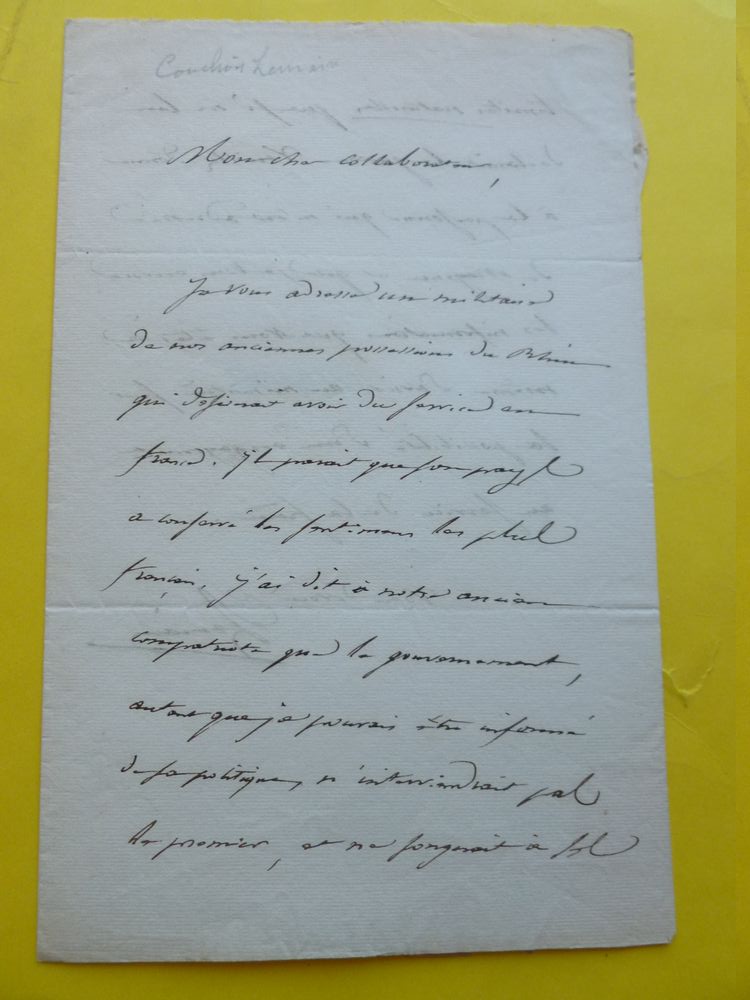 Cauchois Lemaire
Mon cher collaborateur,
Je vous adresse un militaire
de nos anciennes possessions du Rhin
qui désirerait avoir du service en
france. il parait que son pays
a conservé les sentimens les plus
français. j'ai dit à notre ancien
compatriote que le gouvernement,
autant que je pouvais être informé
de sa politique, n'interviendrait pas
le premier, et ne songerait à